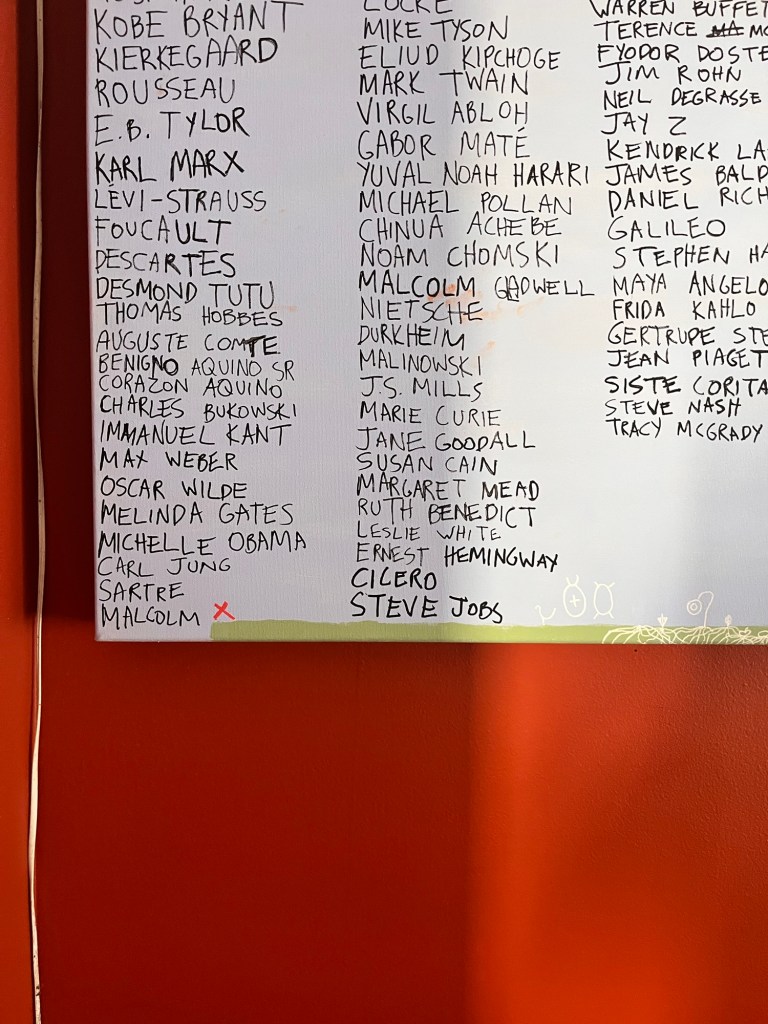 KOBE BRYANT
KIERKEGAARD
ROUSSEAU
E.B. TYLOR
KARL MARX
LÉVI-STRAUSS
FOUCAULT
DESCARTES
DESMOND TUTU
THOMAS HOBBES
AUGUSTE COMTE
BENIGNO AQUINO SR
CORAZON AQUINO
CHARLES BUKOWSKI
IMMANUEL KANT
MAX WEBER
OSCAR WILDE
MELINDA GATES
MICHELLE OBAMA
CARL JUNG
SARTRE
MALCOLM X
LOCKE
MIKE TYSON
ELIUD KIPCHOGE
MARK TWAIN
VIRGIL ABLOH
GABOR MATÉ
YUVAL NOAH HARARI
MICHAEL POLLAN
CHINUA ACHEBE
NOAM CHOMSKI
MALCOLM GLADWELL
NIETSCHE
DURKHEIM
MALINOWSKI
J.S. MILLS
MARIE CURIE
JANE GOODALL
SUSAN CAIN
MARGARET MEAD
RUTH BENEDICT
LESLIE WHITE
ERNEST HEMINGWAY
CICERO
STEVE JOBS
WARREN BUFFET
TERENCE MC
FYODOR DOSTE
JIM ROHN
NEIL DEGRASSE
JAY Z
KENDRICK LA
JAMES BALD
DANIEL RICH
GALILEO
STEPHEN HA
MAYA ANGELO
FRIDA KAHLO
GERTRUDE STE
JEAN PIAGET
SISTE CORITA
STEVE NASH
TRACY MCGRADY